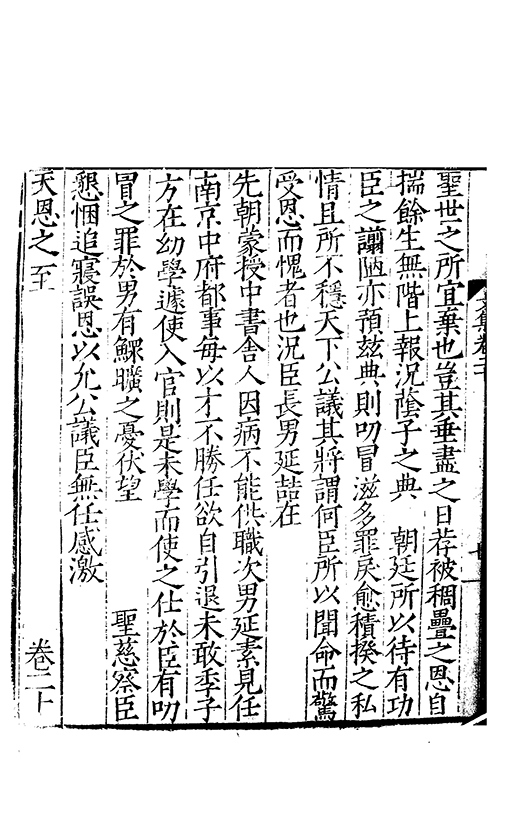 聖世之所宜棄也豈其垂盡之日荐被稠疊之恩自
揣餘生無階上報況蔭子之典　朝廷所以待有功
臣之譾陋亦預茲典則叨冒滋多罪戾愈積揆之私
情且所不穩天下公議其將謂何臣所以聞命而驚
受恩而愧者也況臣長男延喆在
先朝蒙授中書舍人因病不能供職次男延素見任
南京中府都事每以才不勝任欲自引退未敢季子
方在幼學遽使入官則是未學而使之仕於臣有叨
冒之罪於男有鰥曠之憂伏望　聖慈察臣
懇悃追寢誤恩以允公議臣無任感激
天恩之至　卷二十